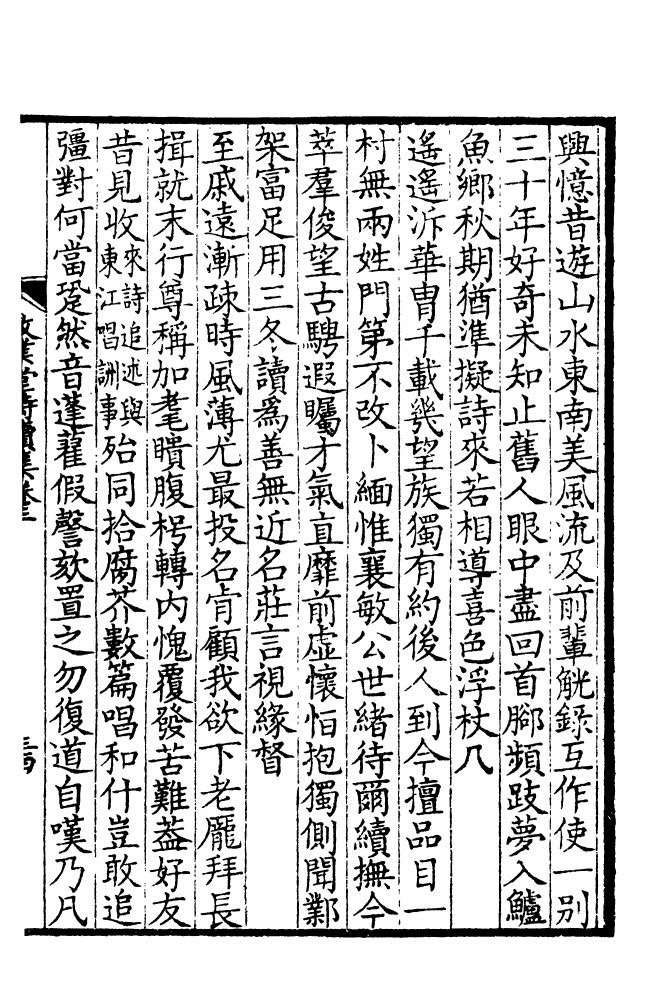 興憶昔遊山水東南美風流及前輩觥錄互作使一別
三十年好奇未知止舊人眼中盡回首腳頻跂夢入鱸
魚鄉秋期猶準擬詩來若相導喜色浮杖几
遙遙泝華胄千載幾望族獨有約後人到今擅品目一
村無兩姓門第不改卜緬惟襄敏公世緒待爾續撫今
萃羣俊望古騁遐矚才氣直靡前虛懷怕抱獨側聞鄴
架富足用三冬讀為善無近名莊言視緣督
至戚遠漸疎時風薄尤最投名肯顧我欲下老龐拜長
揖就末行尊稱加耄瞶腹枵轉內愧覆發苦難葢好友
昔見收來詩追述與東江唱詶事殆同拾腐芥數篇唱和什豈敢追
彊對何當跫然音蓬藋假謦欬置之勿復道自嘆乃凡